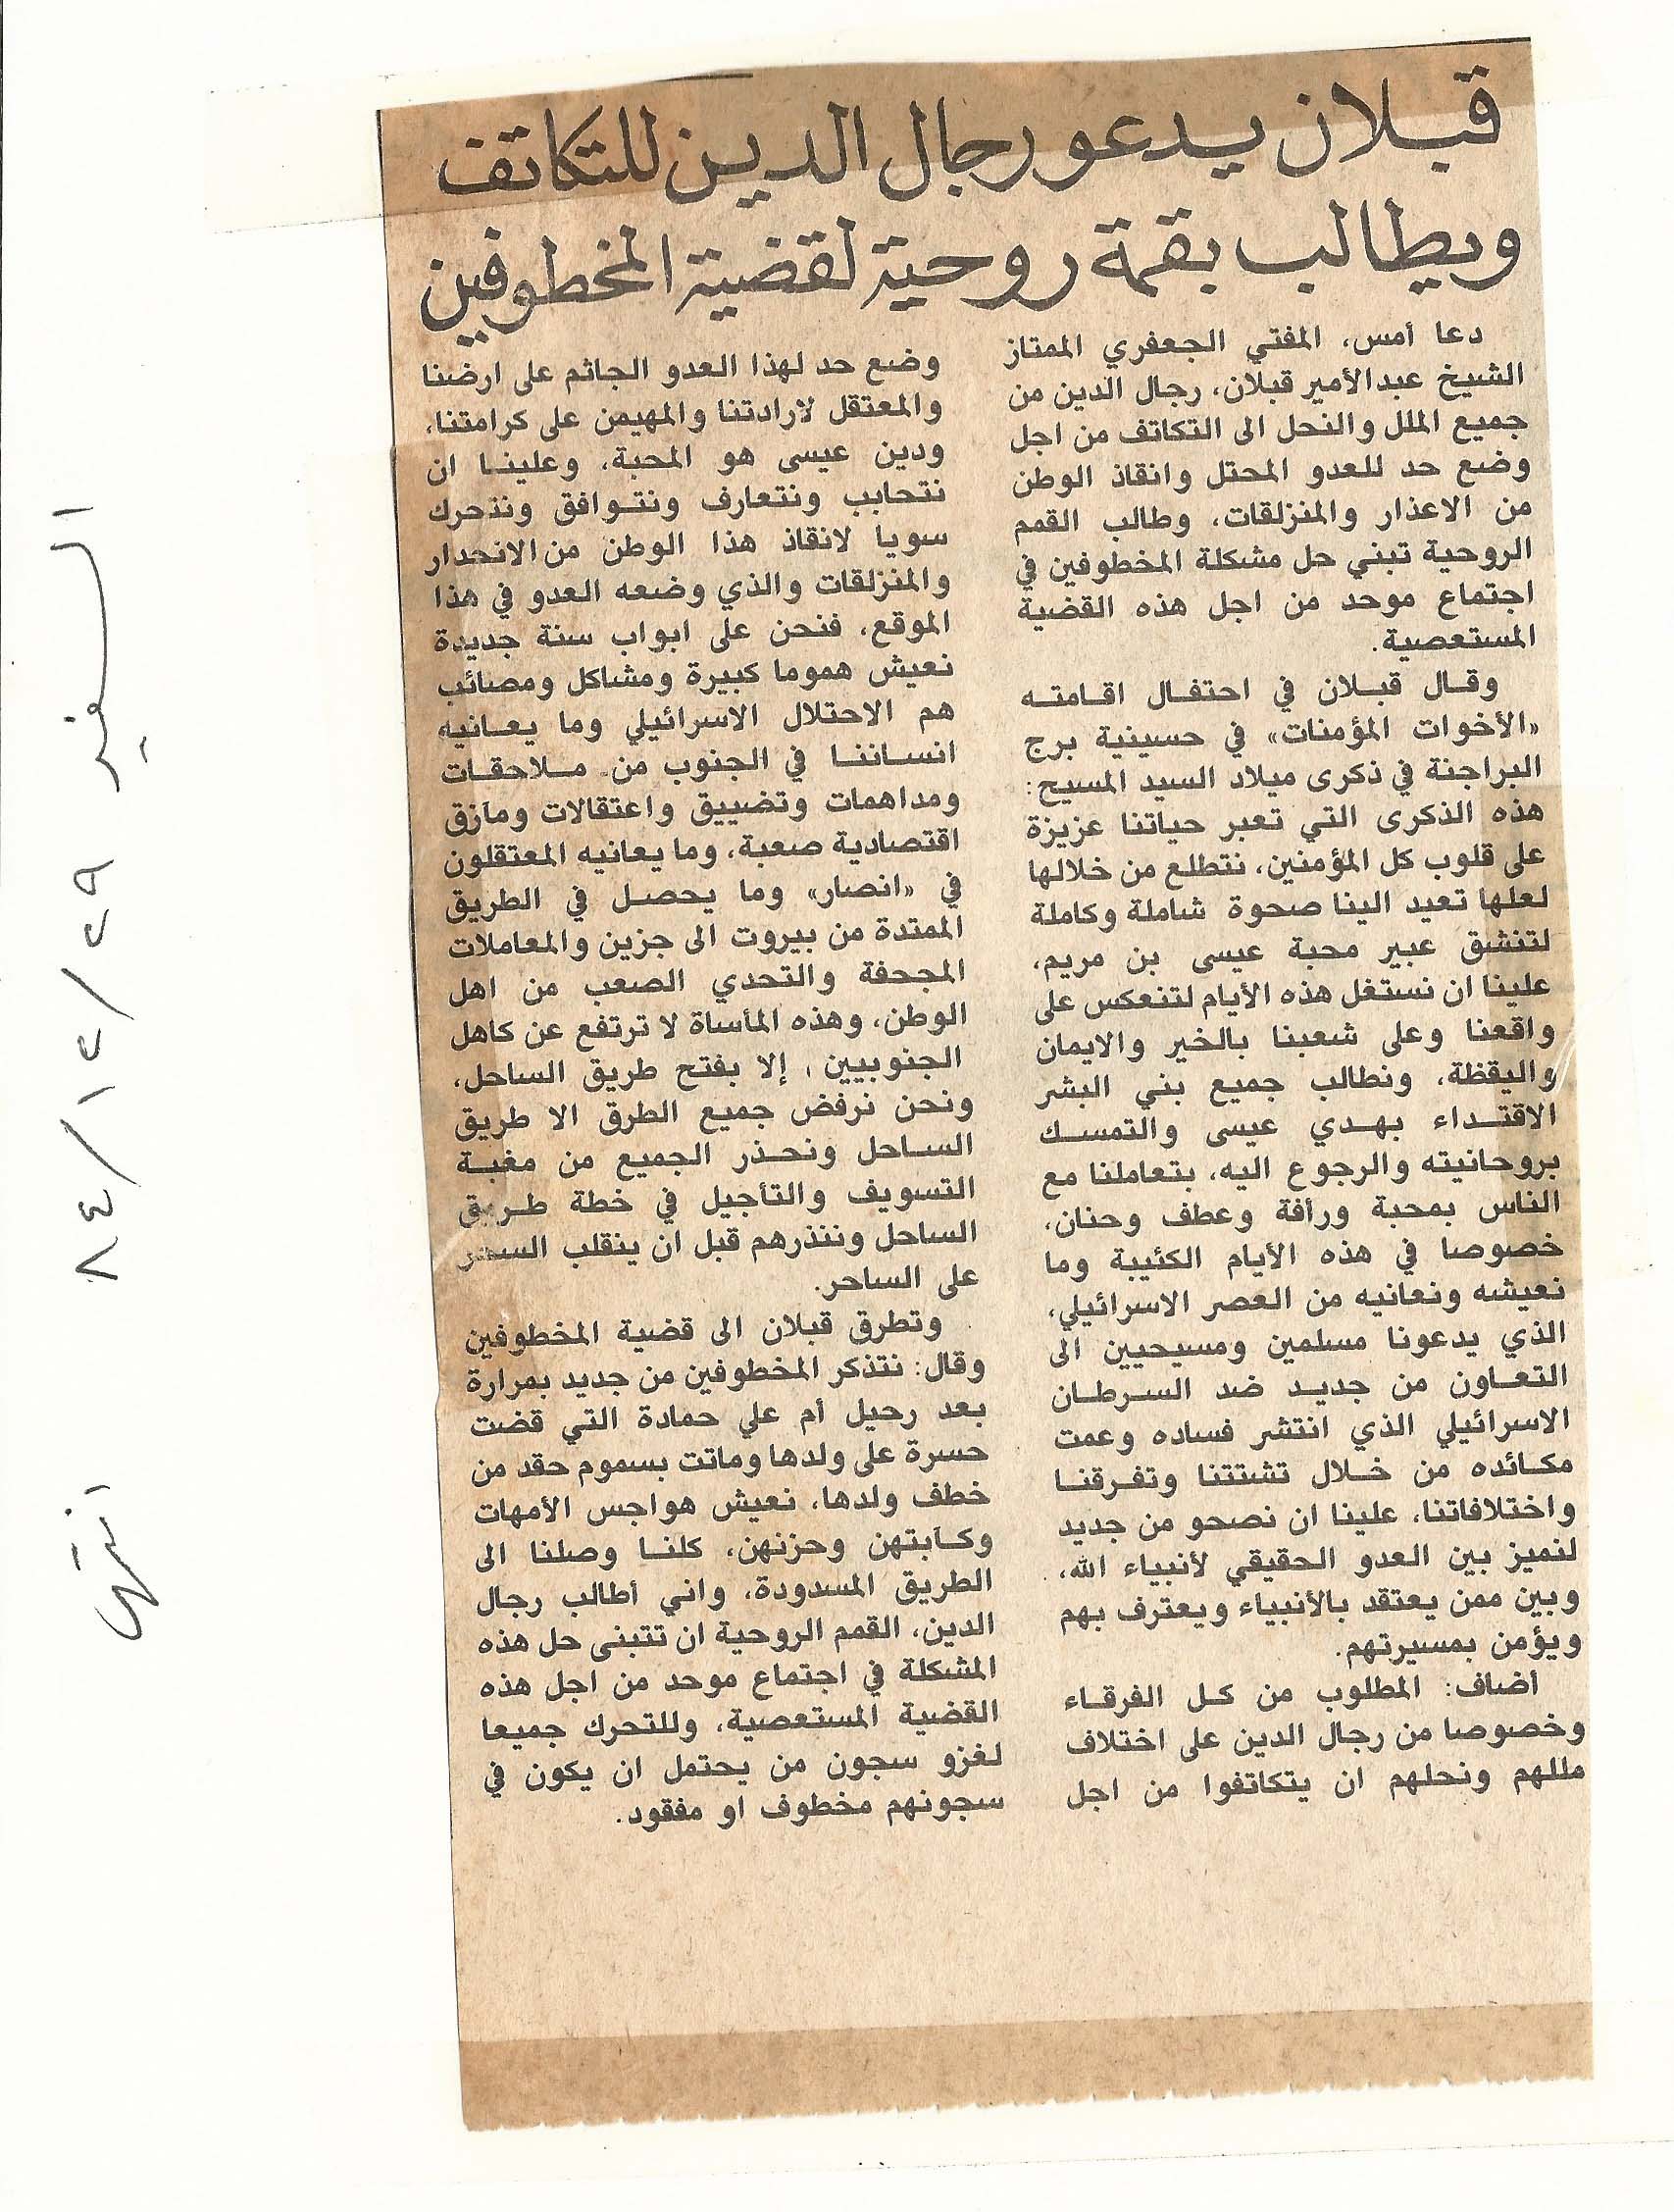 قبلان يدعو رجال الدين للتكاتف
ويطالب بقمة روحية لقضية المخطوفين
دعا أمس، المفتي الجعفري الممتاز
الشيخ عبدالأمير قبلان، رجال الدين من
جميع الملل والنحل الى التكاتف من اجل
وضع حد للعدو المحتل وانقاذ الوطن
من الاعذار والمنزلقات، وطالب القمم
الروحية تبني حل مشكلة المخطوفين في
اجتماع موحد من اجل هذه القضية
المستعصية.
وقال قبلان في احتفال اقامته
«الأخوات المؤمنات» في حسينية برج
البراجنة في ذكرى ميلاد السيد المسيح:
هذه الذكرى التي تعبر حياتنا عزيزة
على قلوب كل المؤمنين، نتطلع من خلالها
لعلها تعيد الينا صحوة شاملة وكاملة
لتنشق عبير محبة عيسى بن مريم،
علينا ان نستغل هذه الأيام لتنعكس على
واقعنا وعلى شعبنا بالخير والايمان
واليقظة، ونطالب جميع بني البشر
الاقتداء بهدي عيسى والتمسك
بروحانيته والرجوع اليه، بتعاملنا مع
الناس بمحبة ورأفة وعطف وحنان،
خصوصا في هذه الأيام الكئيبة وما
نعيشه ونعانيه من العصر الاسرائيلي،
الذي يدعونا مسلمين ومسيحيين الى
التعاون من جديد ضد السرطان
الاسرائيلي الذي انتشر فساده وعمت
مكائده من خلال تشتتنا وتفرقنا
واختلافاتنا، علينا ان نصحو من جديد
لنميز بين العدو الحقيقي لأنبياء الله،
وبين ممن يعتقد بالأنبياء ويعترف بهم
ويؤمن بمسيرتهم.
أضاف: المطلوب من كل الفرقاء
وخصوصا من رجال الدين على اختلاف
مللهم ونحلهم ان يتكاتفوا من اجل
وضع حد لهذا العدو الجاثم على ارضنا
والمعتقل لارادتنا والمهيمن على كرامتنا،
ودين عيسى هو المحبة، وعلينا ان
نتحابب ونتعارف ونتوافق ونتحرك
سويا لانقاذ هذا الوطن من الانحدار
والمنزلقات والذي وضعه العدو في هذا
الموقع، فنحن على ابواب سنة جديدة
نعيش هموما كبيرة ومشاكل ومصائب
هم الاحتلال الاسرائيلي وما يعانيه
انساننا في الجنوب من ملاحقات
ومداهمات وتضييق واعتقالات ومآزق
اقتصادية صعبة، وما يعانيه المعتقلون
في «انصار» وما يحصل في الطريق
الممتدة من بيروت الى جزين والمعاملات
المجحفة والتحدي الصعب من اهل
الوطن، وهذه المأساة لا ترتفع عن كاهل
الجنوبيين، إلا بفتح طريق الساحل،
ونحن نرفض جميع الطرق الا طريق
الساحل ونحذر الجميع من مغبة
التسويف والتأجيل في خطة طريق
الساحل وننذرهم قبل ان ينقلب السحر
على الساحر.
وتطرق قبلان الى قضية المخطوفين
وقال: نتذكر المخطوفين من جديد بمرارة
بعد رحيل أم علي حمادة التي قضت
حسرة على ولدها وماتت بسموم حقد من
خطف ولدها، نعيش هواجس الأمهات
وكآبتهن وحزنهن، كلنا وصلنا الى
الطريق المسدودة، واني أطالب رجال
الدين، القمم الروحية ان تتبنى حل هذه
المشكلة في اجتماع موحد من اجل هذه
القضية المستعصية، وللتحرك جميعا
لغزو سجون من يحتمل ان يكون في
سجونهم مخطوف او مفقود.
السفير ٨٤/١٢/٢٩ انتهى